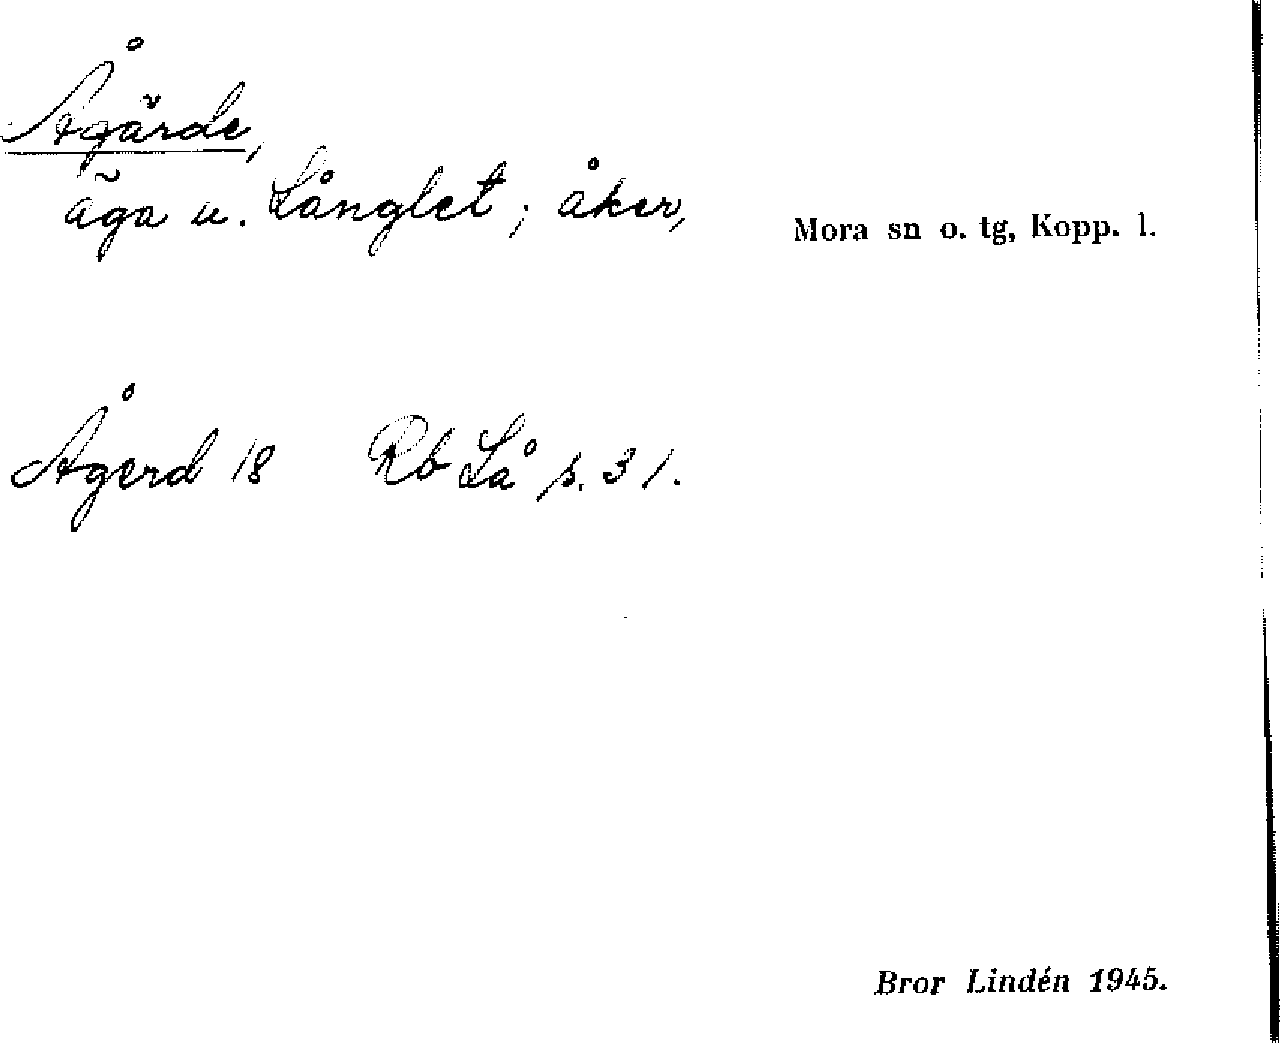 Ågärde,
äga u. Långlet; åker,
Mora sn o. tg, Kopp. l.
Ågerd 18 Rb Lå s. 31.
Bror Lindén 1945.